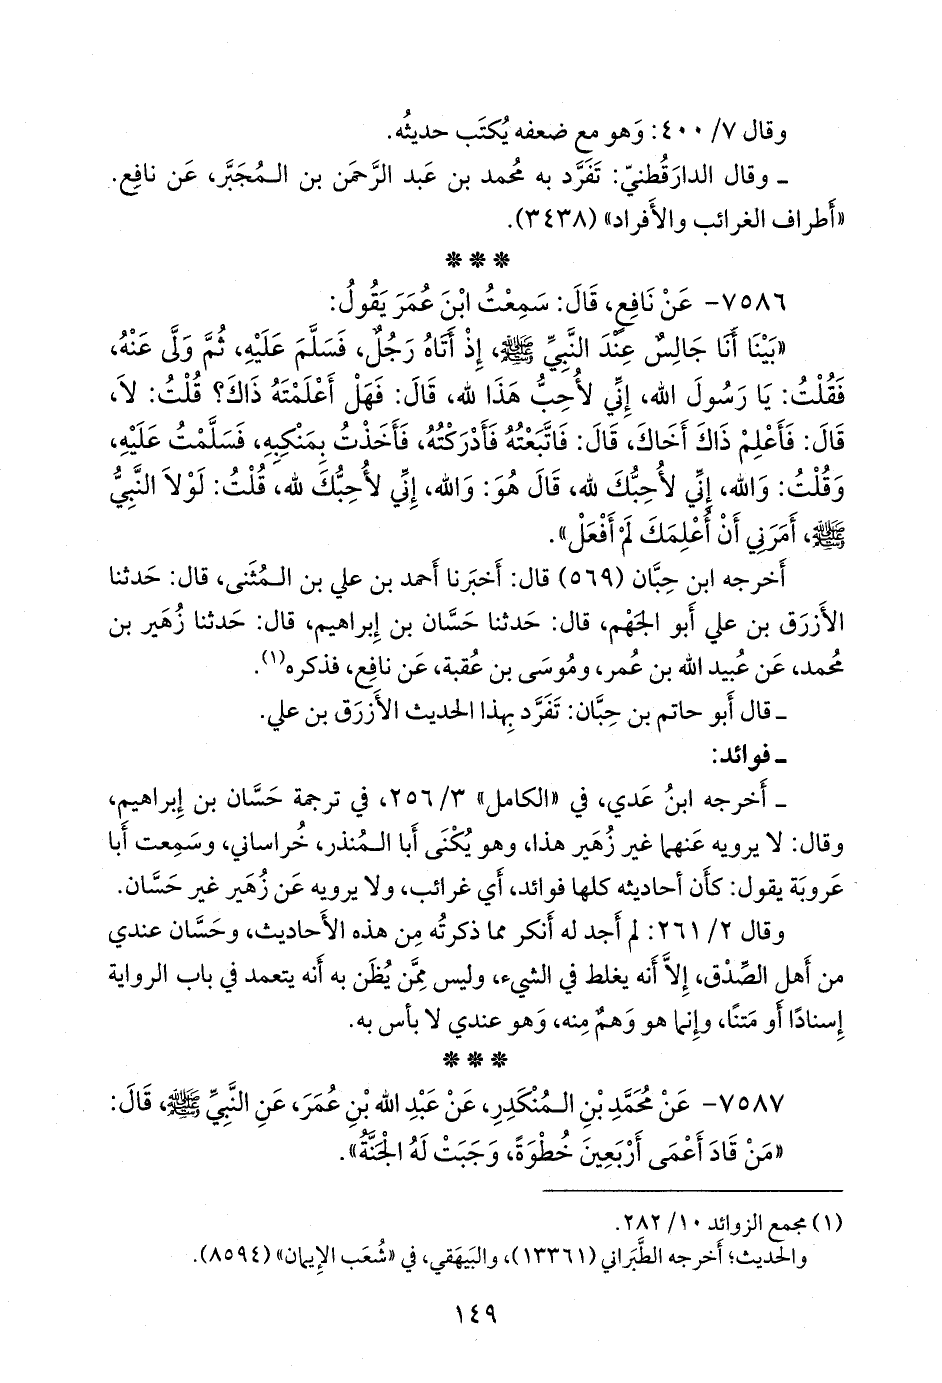 وقال ٧/ ٤٠٠: وَهو مع ضعفه يُكتَب حديثُه.
ـ وقال الدارَقُطنيّ: تَفَرَّد به مُحمد بن عبد الرَّحمَن بن الـمُجَبَّر، عَن نافِع.
«أَطراف الغرائب والأَفراد» (٣٤٣٨).
* * *
٧٥٨٦- عَنْ نَافِعٍ، قَالَ: سَمِعْتُ ابْنَ عُمَرَ يَقُولُ:
«بَيْنَا أَنَا جَالِسٌ عِنْدَ النَّبِيِّ ﷺ، إِذْ أَتَاهُ رَجُلٌ، فَسَلَّمَ عَلَيْهِ، ثُمَّ وَلَّى عَنْهُ،
فَقُلْتُ: يَا رَسُولَ الله، إِنِّي لأُحِبُّ هَذَا لله، قَالَ: فَهَلْ أَعْلَمْتَهُ ذَاكَ؟ قُلْتُ: لاَ،
قَالَ: فَأَعْلِمْ ذَاكَ أَخَاكَ، قَالَ: فَاتَّبَعْتُهُ فَأَدْرَكْتُهُ، فَأَخَذْتُ بِمَنْكِبِهِ، فَسَلَّمْتُ عَلَيْهِ،
وَقُلْتُ: وَالله، إِنِّي لأُحِبُّكَ لله، قَالَ هُوَ: وَالله، إِنِّي لأُحِبُّكَ لله، قُلْتُ: لَوْلاَ النَّبِيُّ
ﷺ، أَمَرَنِي أَنْ أُعْلِمَكَ لَمْ أَفْعَلْ».
أَخرجه ابن حِبَّان (٥٦٩) قال: أَخبَرنا أَحمد بن علي بن الـمُثَنى، قال: حَدثنا
الأَزرَق بن علي أَبو الجَهْم، قال: حَدثنا حَسَّان بن إِبراهيم، قال: حَدثنا زُهَير بن
مُحمد، عَن عُبيد الله بن عُمر، ومُوسَى بن عُقبة، عَن نافِع، فذكره(١).
ـ قال أَبو حاتم بن حِبَّان: تَفَرَّد بِهذا الحديث الأَزرَق بن علي.
ـ فوائد:
ـ أَخرجه ابنُ عَدي، في «الكامل» ٣/ ٢٥٦، في ترجمة حَسَّان بن إِبراهيم،
وقال: لا يرويه عَنهما غير زُهَير هذا، وهو يُكْنَى أَبا الـمُنذر، خُراساني، وسَمِعت أَبا
عَروبَة يقول: كأَن أَحاديثه كلها فوائد، أَي غرائب، ولا يرويه عَن زُهَير غير حَسَّان.
وقال ٢/ ٢٦١: لم أَجد له أَنكر مما ذكرتُه مِن هذه الأَحاديث، وحَسَّان عندي
من أَهل الصِّدْق، إِلاَّ أَنه يغلط في الشيء، وليس مِمَّن يُظَن به أَنه يتعمد في باب الرواية
إِسنادًا أَو مَتنًا، وإِنما هو وَهمٌ مِنه، وَهو عندي لا بأس به.
* * *
٧٥٨٧- عَنْ مُحَمَّدِ بْنِ الـمُنْكَدِرِ، عَنْ عَبْدِ الله بْنِ عُمَرَ، عَنِ النَّبِيِّ ﷺ، قَالَ:
«مَنْ قَادَ أَعْمَى أَرْبَعِينَ خُطْوَةً، وَجَبَتْ لَهُ الْجَنَّةُ».
(١) مجمع الزوائد ١٠/ ٢٨٢.
والحديث؛ أَخرجه الطَّبَراني (١٣٣٦١)، والبَيهَقي، في «شُعَب الإِيمان» (٨٥٩٤).
١٤٩